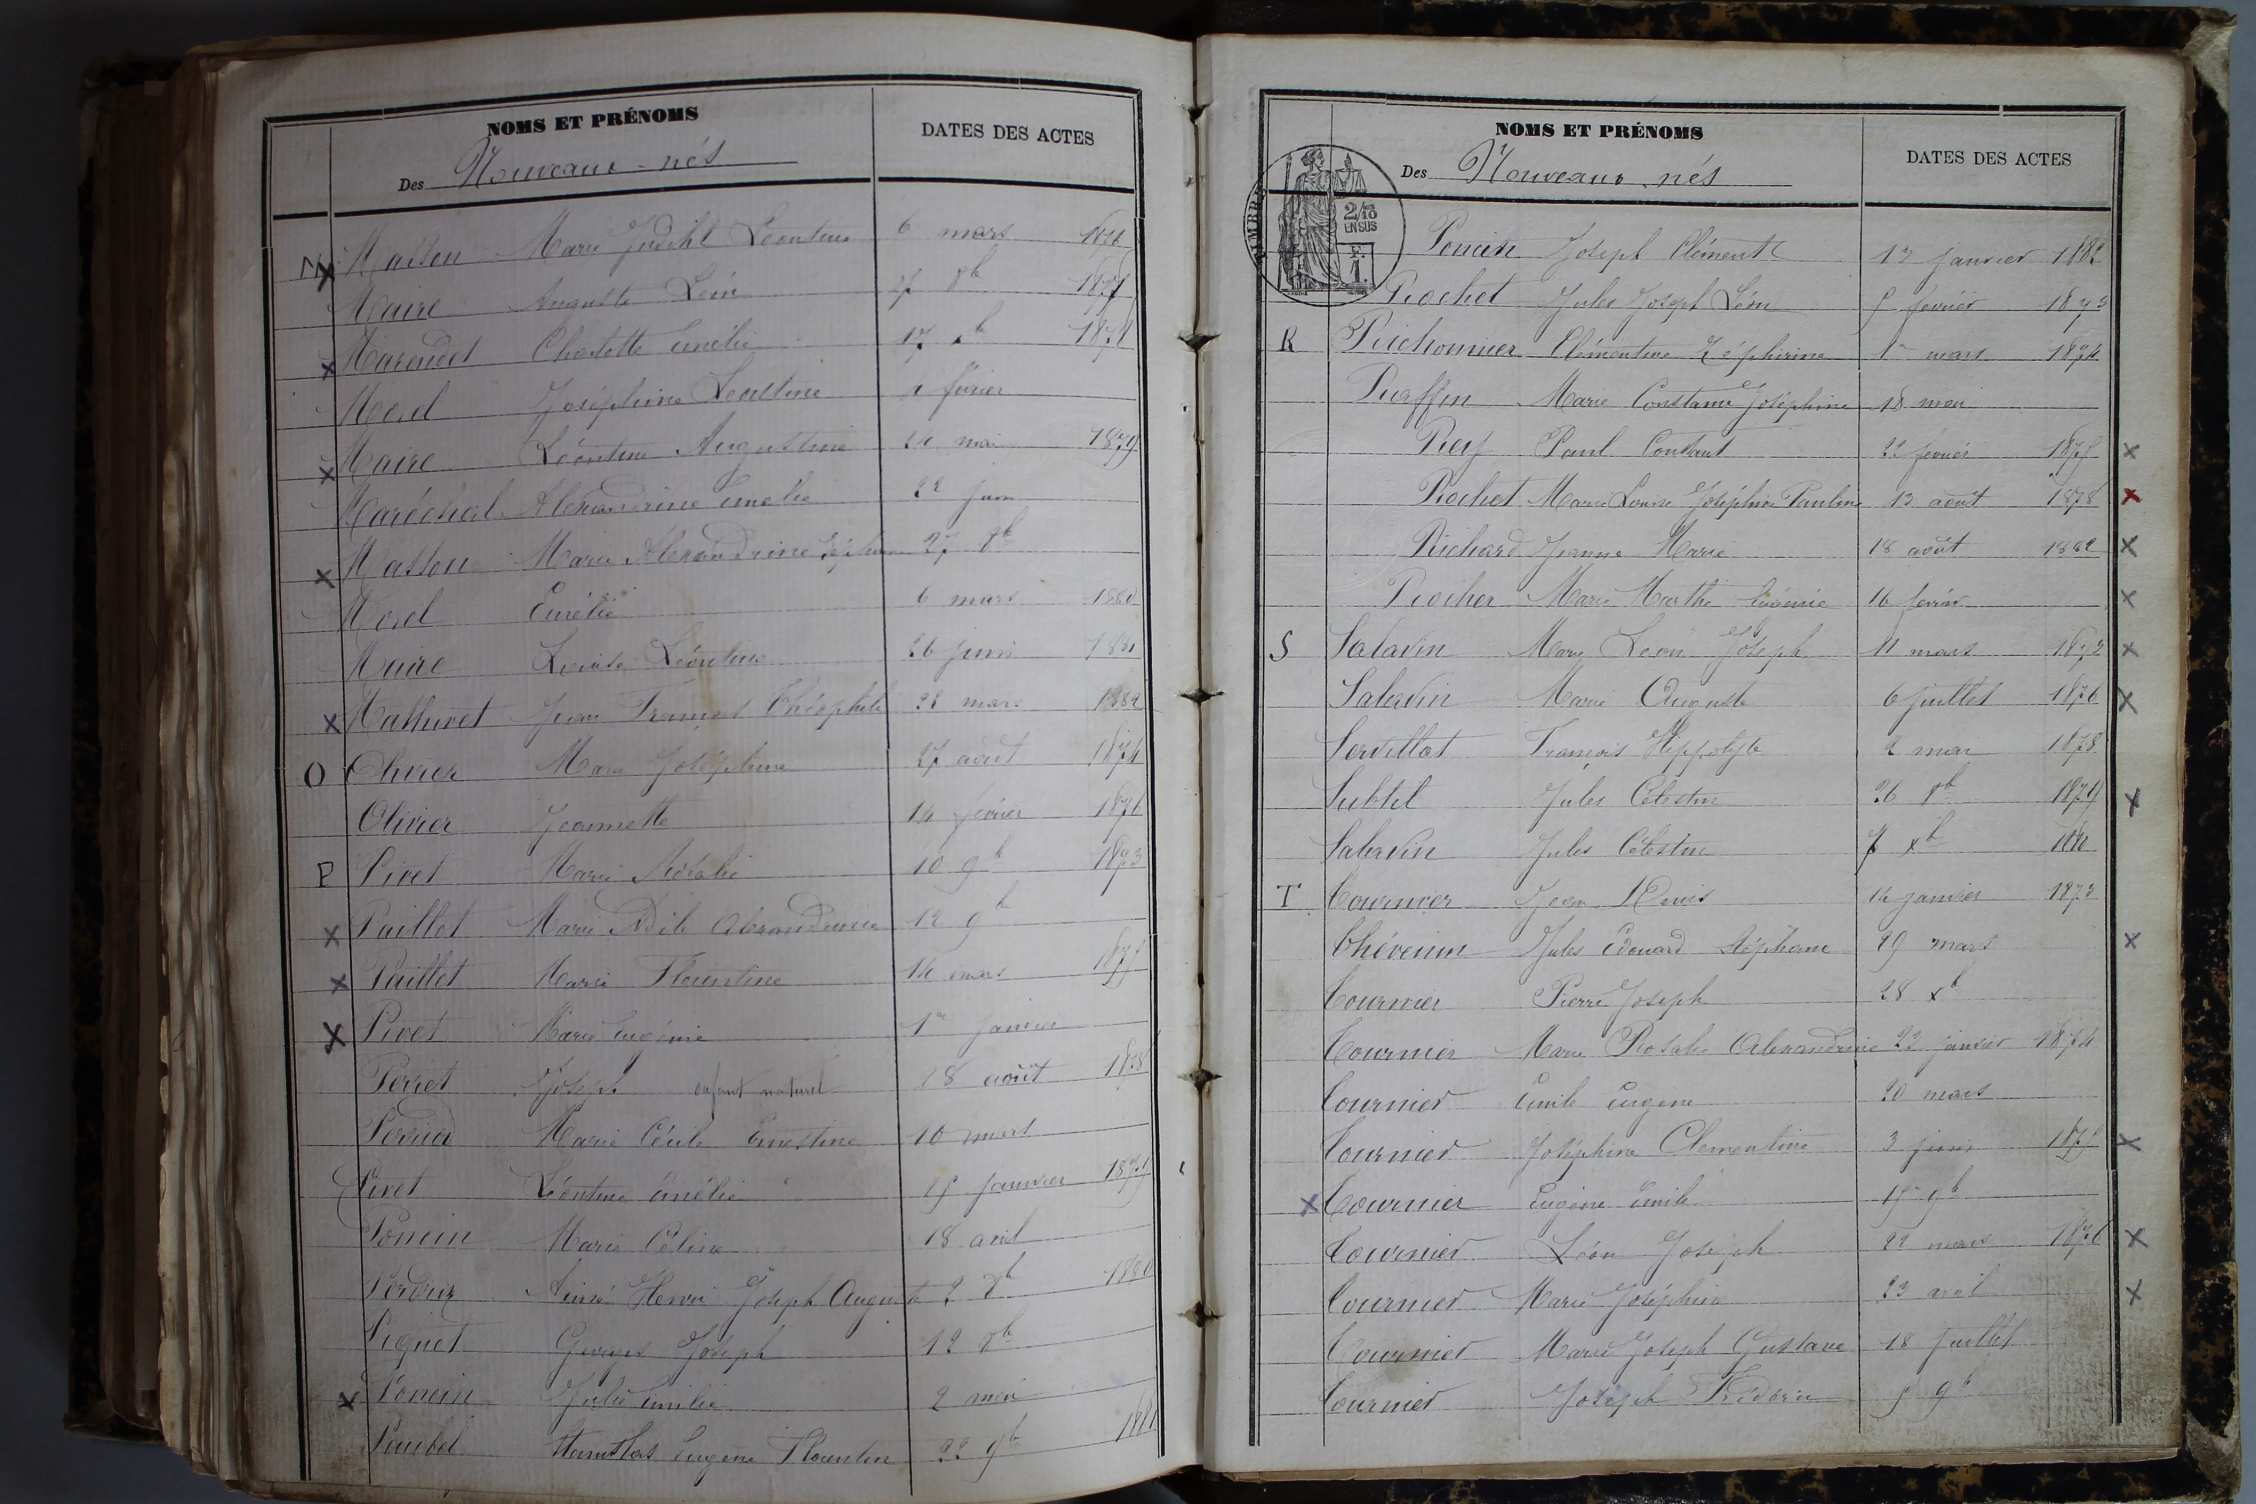 NOMS ET PRÉNOMS DATES DES ACTES
Des Nouveaux-nés
M Masson Marie Judith Léontine 6 mars 1878
Maire Auguste Léon 27 8b
Maraudet Charlotte Amélie 17 xb 1878
Morel Joséphine Léontine février
Maire Léontine Augustine 24 mai 1879
Maréchal Alexandrine Amélie 22 juin
Masson Marie Alexandrine 27 8b
Morel Emélie 6 mars 1880
Maire Louise Léontine 26 juin 1881
Mathuret Jean François Théophile 28 mars 1882
O Olivier Marie Joséphine 27 août 1874
Olivier Jeannette 14 février 1876
P Pivet Marie 10 9b 1873
Paillot Marie Adèle Alexandrine 12 9b
Paillot Marie Florentine 14 mars 1875
Pivet Marie Eugénie 1er janvier
Perret Joseph enfant naturel 18 août 1878
Marie Cécile Ernestine 10 mars
Pivet Léontine Amélie 15 janvier 1879
Poncin Marie Céline 18 avril
Aimé Henri Joseph August 2 8b 1880
Piquet Georges Joseph 12 8b
Poncin Julie Emilie 2 mai
Paubel Stanislas Eugène Florentin 22 9b 1881
NOMS ET PRÉNOMS DATES DES ACTES
Des Nouveaux-nés
TIMBRE
2/10
EN SUS
F.
1.
Poncin Joseph Clément janvier 1882
Rochet Jules Joseph Léon 5 février 1873
R Richonnier Clémentine Zéphirine 1er mars 1874
Raffin Marie Constance Joséphine 18 mai
Rey Paul Constant 22 février 1875
Rochet Marie Louise Joséphine Pauline 13 août 1878
Richard Jeanne Marie 18 août 1882
Rocher Marie Marthe Eugénie 16 février
S Salavin Marie Léon Joseph 11 mars 1873
Salavin Marie Auguste 6 juillet 1876
Servillat François Hippolyte 2 mai 1878
Subtil Jules Célestin 26 8b 1879
Salavin Jules Célestin 7 xb
T Tournier Jean Denis 14 janvier 1873
Thévenin Jules Edouard Stéphane 29 mars
Tournier Pierre Joseph 28 xb
Tournier Marie Rosalie Alexandrine 23 janvier 1874
Tournier Emile Eugène 20 mars
Tournier Joséphine Clémentine 3 juin 1875
Tournier Eugène Emile 15 9b
Tournier Léon Joseph 22 mars 1876
Tournier Marie Joséphine 23 avril
Tournier Marie Joseph Gustave 18 juillet
Tournier Joseph Frédéric 5 9b